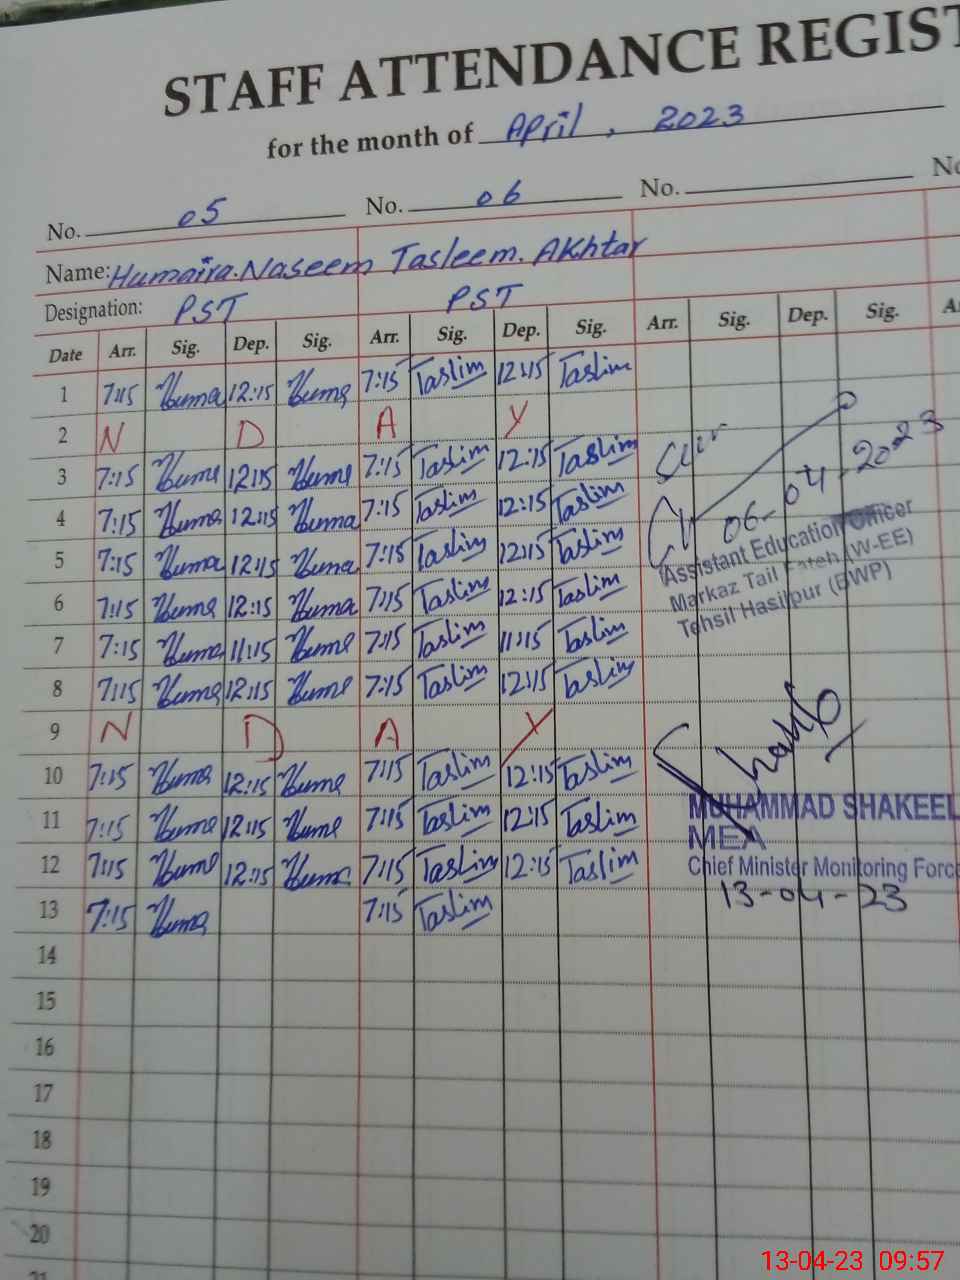 STAFF ATTENDANCE REGIST
for the month of April, 2023
No. 05 No. 06 No. No
Name: Humaira.Naseem Tasleem.Akhtar
Designation: PST PST
Date Arr. Sig. Dep. Sig. Arr. Sig. Dep. Sig. Arr. Sig. Dep. Sig. A
1 7:15 Huma 12:15 Huma 7:15 Taslim 12:15 Taslim
2 N D A Y
3 7:15 Huma 12:15 Huma 7:15 Taslim 12:15 Taslim
4 7:15 Huma 12:15 Huma 7:15 Taslim 12:15 Taslim
06-04-2023
5 7:15 Huma 12:15 Huma 7:15 Taslim 12:15 Taslim
Assistant Education Officer
6 7:15 Huma 12:15 Huma 7:15 Taslim 12:15 Taslim
Markaz Tail Fateh (W-EE)
Tehsil Hasilpur (BWP)
7 7:15 Huma 11:15 Huma 7:15 Taslim 11:15 Taslim
8 7:15 Huma 12:15 Huma 7:15 Taslim 12:15 Taslim
9 N D A Y
10 7:15 Huma 12:15 Huma 7:15 Taslim 12:15 Taslim
11 7:15 Huma 12:15 Huma 7:15 Taslim 12:15 Taslim
MUHAMMAD SHAKEEL
MEA
12 7:15 Huma 12:15 Huma 7:15 Taslim 12:15 Taslim
Chief Minister Monitoring Force
13 7:15 Huma 7:15 Taslim
13-04-23
14
15
16
17
18
19
20
21
13-04-23 09:57